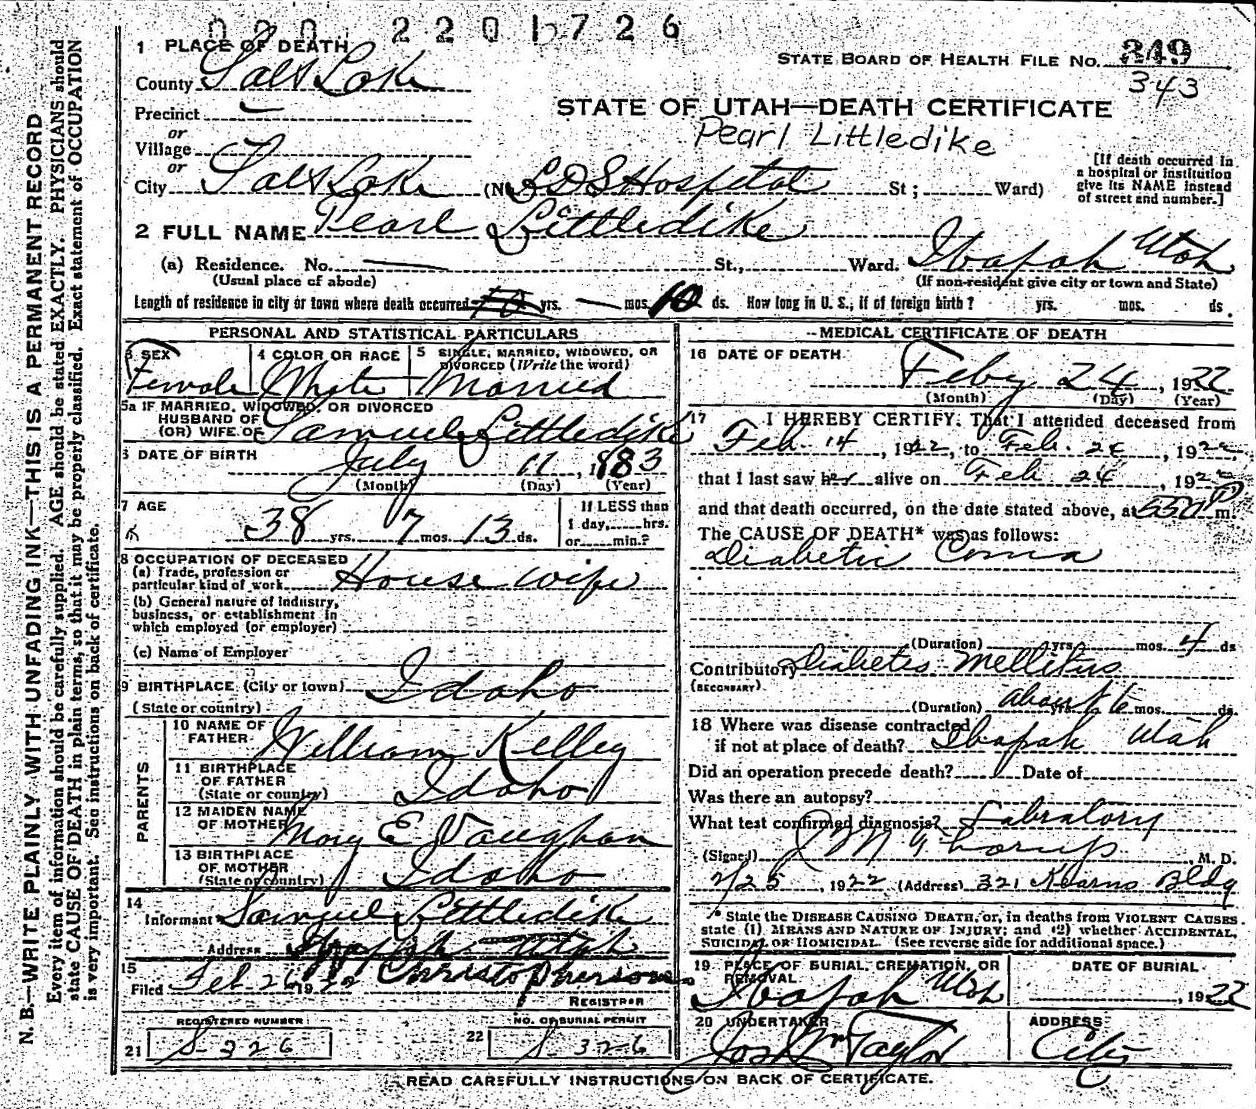 020 2201726
1 PLACE OF DEATH
County Salt Lake
STATE BOARD OF HEALTH FILE NO. 349
343
Precinct
or
Village
or
STATE OF UTAH—DEATH CERTIFICATE
Pearl Littledike
City Salt Lake (No. LDS Hospital St; Ward)
[If death occurred in a hospital or institution give its NAME instead of street and number.]
2 FULL NAME Pearl Littledike
(a) Residence. No. St., Ward. Ibapah Utah
(Usual place of abode) (If non-resident give city or town and State)
Length of residence in city or town where death occurred yrs. mos. 10 ds. How long in U. S., if of foreign birth? yrs. mos. ds.
PERSONAL AND STATISTICAL PARTICULARS
3 SEX 4 COLOR OR RACE 5 SINGLE, MARRIED, WIDOWED, OR DIVORCED (Write the word)
Female White Married
5a IF MARRIED, WIDOWED, OR DIVORCED
HUSBAND OF
(OR) WIFE OF Samuel Littledike
6 DATE OF BIRTH July 11, 1883
(Month) (Day) (Year)
7 AGE
38 yrs. 7 mos. 13 ds.
If LESS than
1 day, hrs.
or min.?
8 OCCUPATION OF DECEASED
(a) Trade, profession or
particular kind of work House wife
(b) General nature of industry,
business, or establishment in
which employed (or employer)
(c) Name of Employer
9 BIRTHPLACE (City or town) Idaho
(State or country)
PARENTS
10 NAME OF
FATHER William Kelley
11 BIRTHPLACE
OF FATHER
(State or country) Idaho
12 MAIDEN NAME
OF MOTHER Mary E Vaughan
13 BIRTHPLACE
OF MOTHER
(State or country) Idaho
14
Informant Samuel Littledike
Address Ibapah Utah
15
Filed Feb 26 1922 Christophersons
REGISTRAR
REGISTERED NUMBER NO. OF BURIAL PERMIT
21 S-326 22 S-326
MEDICAL CERTIFICATE OF DEATH
16 DATE OF DEATH
Feby 24, 1922
(Month) (Day) (Year)
17 I HEREBY CERTIFY, That I attended deceased from
Feb. 14, 1922, to Feb. 24, 1922
that I last saw her alive on Feb 24, 1922
and that death occurred, on the date stated above, at 550 P m
The CAUSE OF DEATH* was as follows:
Diabetic Coma
(Duration) yrs. mos. 4 ds
Contributory Diabetes Mellitus
(SECONDARY)
(Duration) about 6 mos. ds.
18 Where was disease contracted
if not at place of death? Ibapah Utah
Did an operation precede death? Date of
Was there an autopsy?
What test confirmed diagnosis? Labratory
(Signed) , M. D.
2/25, 1922 (Address) 321 Kearns Bldg
* State the DISEASE CAUSING DEATH, or, in deaths from VIOLENT CAUSES
state (1) MEANS AND NATURE OF INJURY; and (2) whether ACCIDENTAL,
SUICIDAL OR HOMICIDAL. (See reverse side for additional space.)
19 PLACE OF BURIAL, CREMATION, OR REMOVAL DATE OF BURIAL
Ibapah Utah , 1922
20 UNDERTAKER ADDRESS
Jos Wm Taylor City
READ CAREFULLY INSTRUCTIONS ON BACK OF CERTIFICATE.
N. B.—WRITE PLAINLY WITH UNFADING INK—THIS IS A PERMANENT RECORD
Every item of information should be carefully supplied. AGE should be stated EXACTLY. PHYSICIANS should
state CAUSE OF DEATH in plain terms, so that it may be properly classified. Exact statement of OCCUPATION
is very important. See instructions on back of certificate.